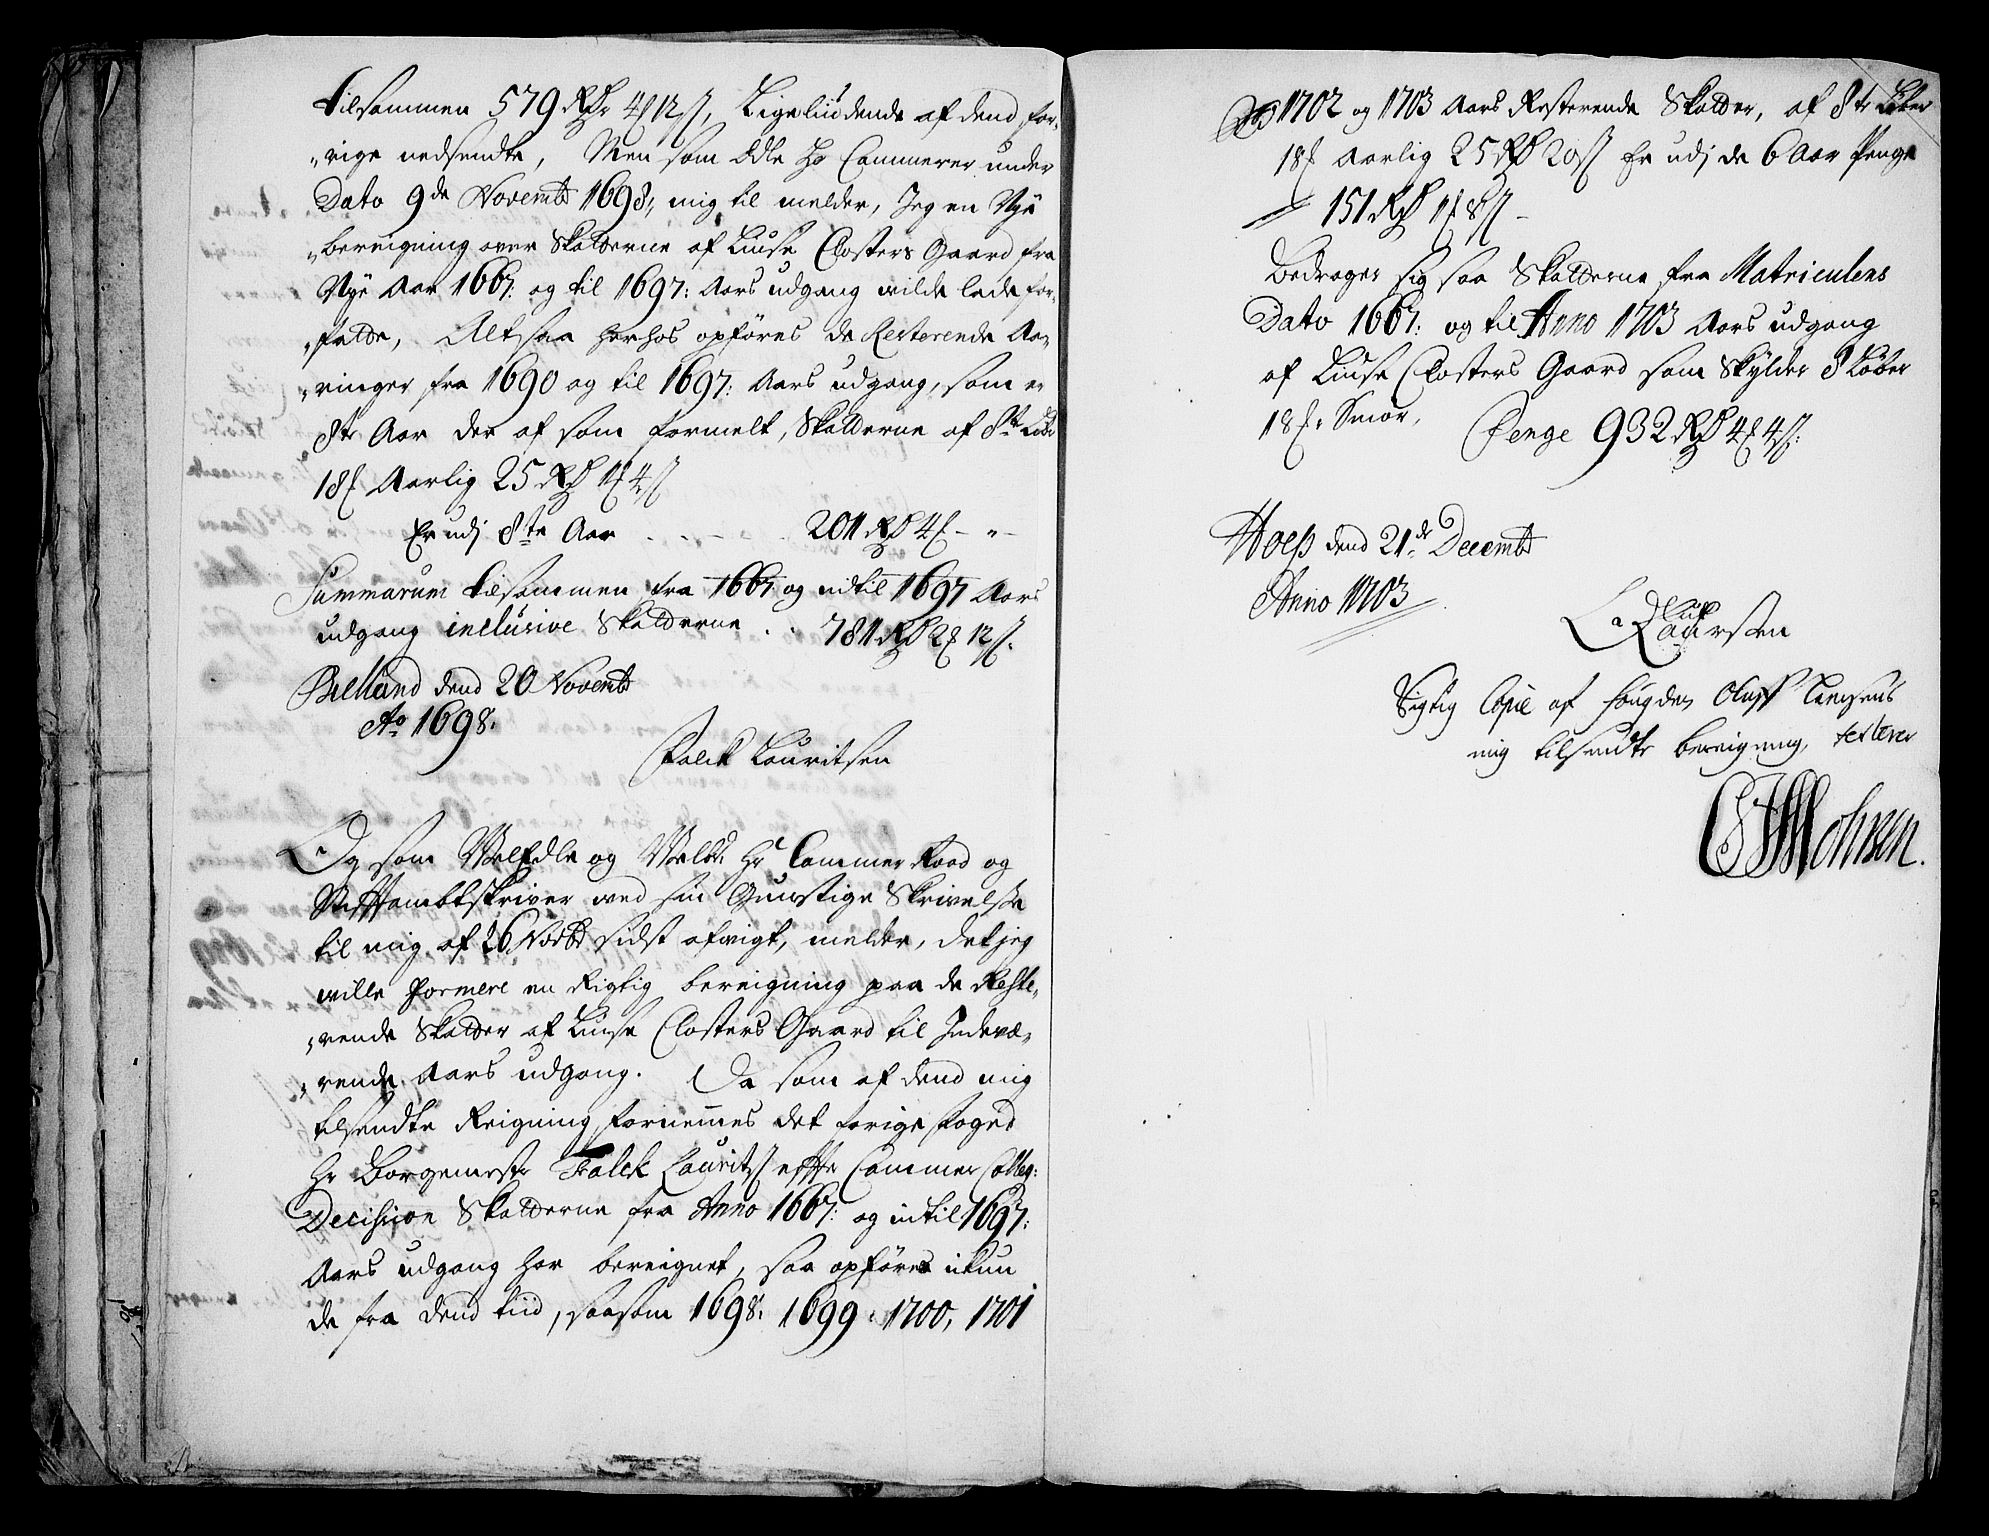 tilsammen 579 RDr 4 ℔ 12 ß, Ligeliudende af dend for-
rige nedsendte, Men som Edle Hr Cammerer under
Dato 9de Novembr 1698, mig til melder, Jeg en Nye
bereigning over Skatterne af Liuse Closters Gaard fra
Nye Aar 1667: og til 1697: Aars udgang wilde lade for-
fatte, Altsaa herhos opføres de Resterende Aa-
ringer fra 1690 og til 1697: Aars udgang, som er
8te Aar der af som formelt, Skatterne af 8te Løber
18 ℔ Aarlig 25 RD 1 ℔ 4 ß
Er udj 8te Aar . . . . 201 RD 4 ℔ - " -
Summarum tilsammen fra 1667 og indtil 1697 Aars
udgang inclusive Skatterne . . 781 RD 2 ℔ 12 ß.
Bielland dend 20 Novembr
Ao 1698.
Falck Lauritsen
Og som WelEdle og Welbr Hr Cammer Raad og
Stifftambtskriver med sin Gunstige Skrivelse
til mig af 26 Novbr sidst afvigt, melder, det jeg
wille formere en Rigtig bereigning paa de Reste-
rende Skatter af Liuse Closters Gaard til Indewæ-
rende Aars udgang. Da som af dend mig
tilsendte Reigning fornemmes det forige foged
Hr Borgemester Falck Lauritz effter Cammer Colleg:
Decision Skatterne fra Anno 1667: og intil 1697:
Aars udgang har bereignet, saa opføres ikun
de fra dend tiid, saasom 1698. 1699. 1700, 1701
1702 og 1703 Aars Resterende Skatter, af 8te Løber
18 ℔ Aarlig 25 RD 20 ß Er udj de 6 Aar Penge
151 RD 1 ℔ 8 ß -
Bedrager sig saa Skatterne fra Matriculens
Dato 1667: og til Anno 1703 Aars udgang
af Liuse Closters Gaard som Skylder 8 Løber
18 ℔ Smør, Penge 932 RD 4 ℔ 4 ß:
Hop dend 21de Decembr
Anno 1703
Laursen
Rigtig Copie af fougden Oluff Larsens
mig tilsendte bereigning, testerer